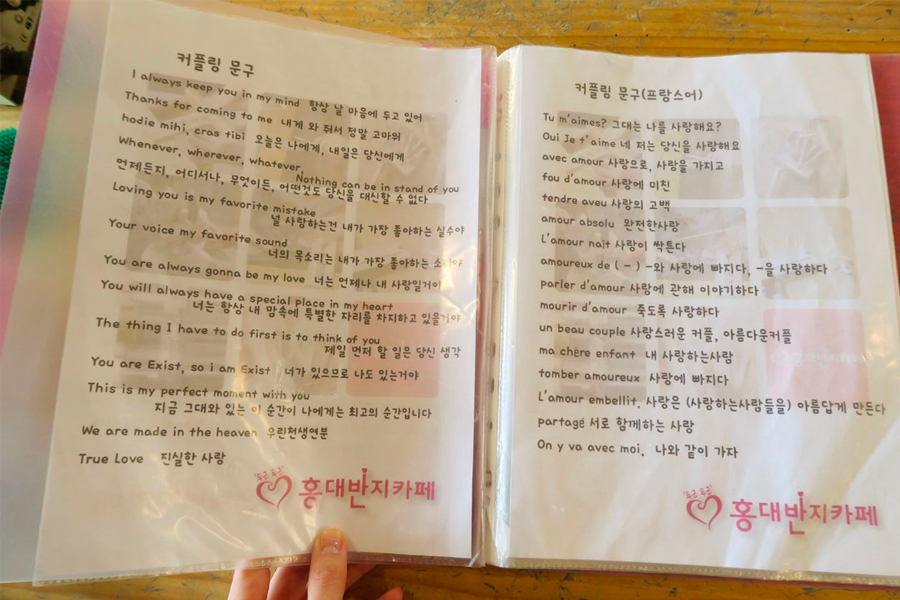 커플링 문구
I always keep you in my mind 항상 날 마음에 두고 있어
Thanks for coming to me 내게 와 줘서 정말 고마워
hodie mihi, cras tibi 오늘은 나에게, 내일은 당신에게
Whenever, wherever, whatever,
Nothing can be in stand of you
언제든지, 어디서나, 무엇이든, 어떤것도 당신을 대신할 수 없다
Loving you is my favorite mistake
널 사랑하는건 내가 가장 좋아하는 실수야
Your voice my favorite sound
너의 목소리는 내가 가장 좋아하는 소리야
You are always gonna be my love 너는 언제나 내 사랑일거야
You will always have a special place in my heart
너는 항상 내 맘속에 특별한 자리를 차지하고 있을거야
The thing I have to do first is to think of you
제일 먼저 할 일은 당신 생각
You are Exist, so i am Exist 너가 있으므로 나도 있는거야
This is my perfect moment with you
지금 그대와 있는 이 순간이 나에게는 최고의 순간입니다
We are made in the heaven 우린천생연분
True Love 진실한 사랑
"두근 두근"
홍대반지카페
커플링 문구(프랑스어)
Tu m'aimes? 그대는 나를 사랑해요?
Oui Je t'aime 네 저는 당신을 사랑해요
avec amour 사랑으로, 사랑을 가지고
fou d'amour 사랑에 미친
tendre aveu 사랑의 고백
amour absolu 완전한사랑
L'amour naît 사랑이 싹튼다
amoureux de ( - ) -와 사랑에 빠지다, -을 사랑하다
parler d'amour 사랑에 관해 이야기하다
mourir d'amour 죽도록 사랑하다
un beau couple 사랑스러운 커플, 아름다운커플
ma chère enfant 내 사랑하는사람
tomber amoureux 사랑에 빠지다
L'amour embellit. 사랑은 (사랑하는사람들을) 아름답게 만든다
partagé 서로 함께하는 사랑
On y va avec moi. 나와 같이 가자
"두근 두근"
홍대반지카페